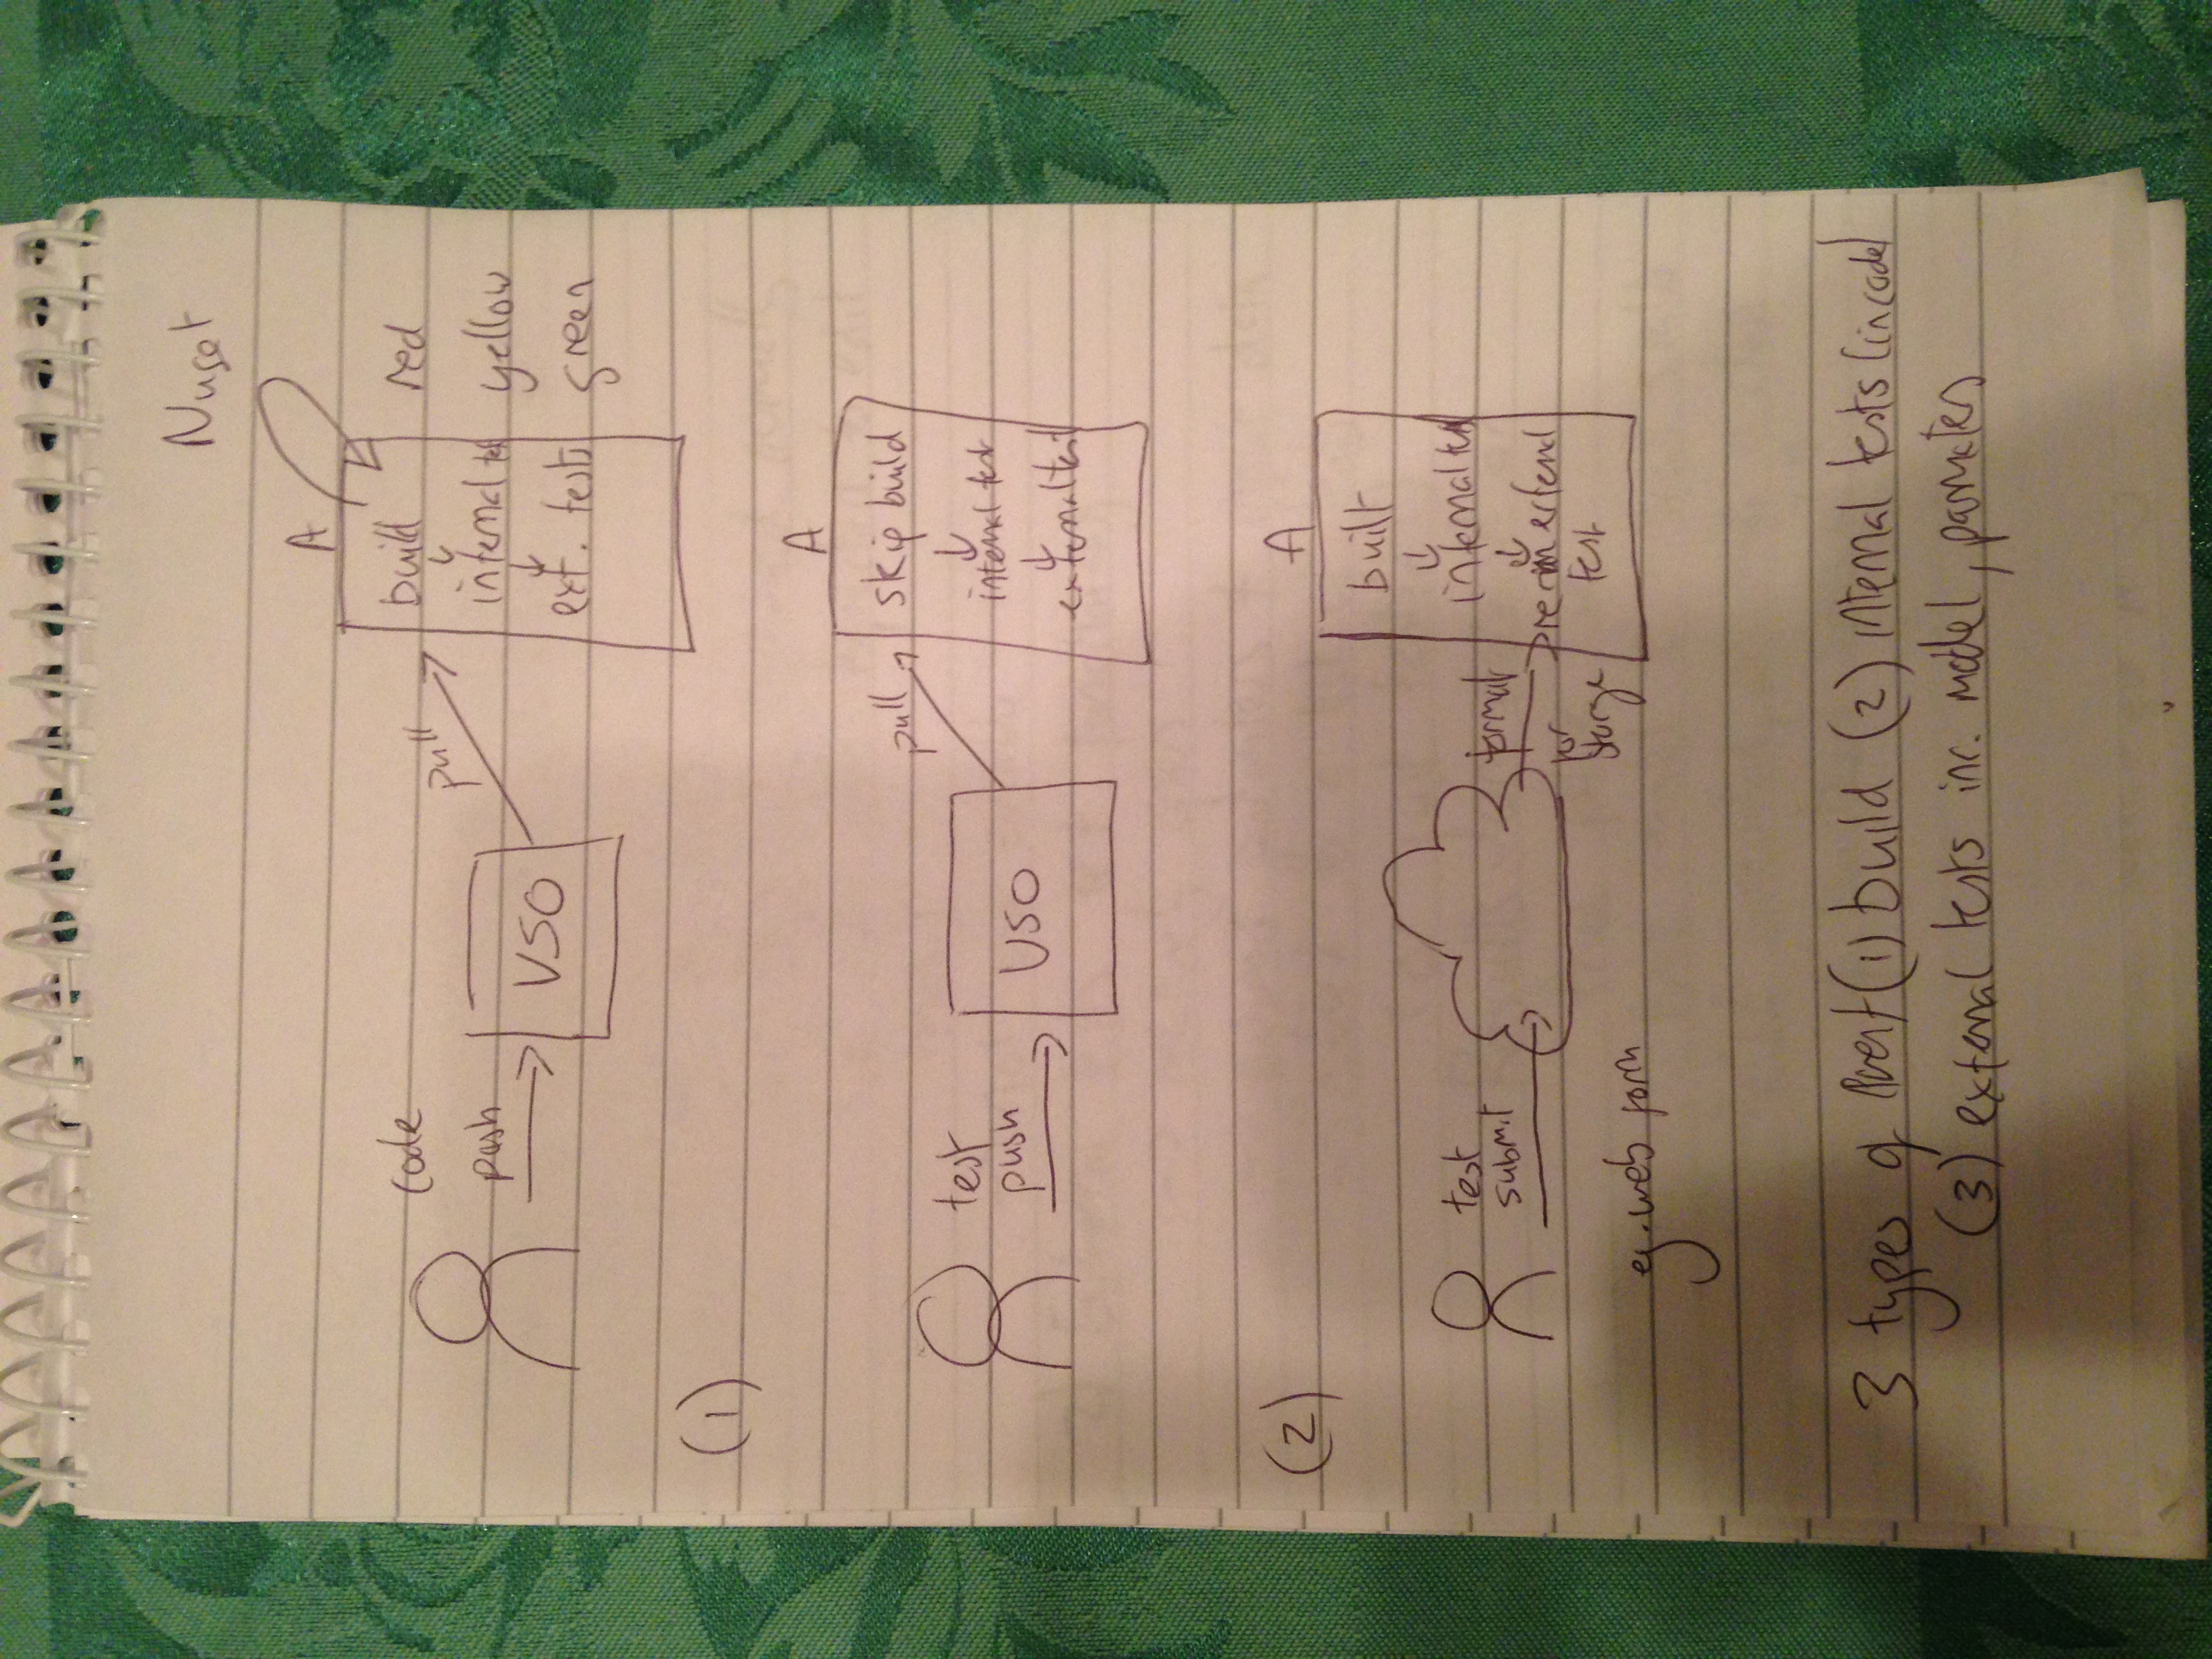 Nuget
A
code
push
VSO
pull
build
internal test
ext. tests
red
yellow
green
(1)
A
test
push
VSO
pull
skip build
internal test
external test
(2)
A
test
submit
eg. web form
format
for
storage
built
internal test
rerun external
test
3 types of Agent (1) build (2) internal tests (incode)
(3) external tests inc. model, parameters